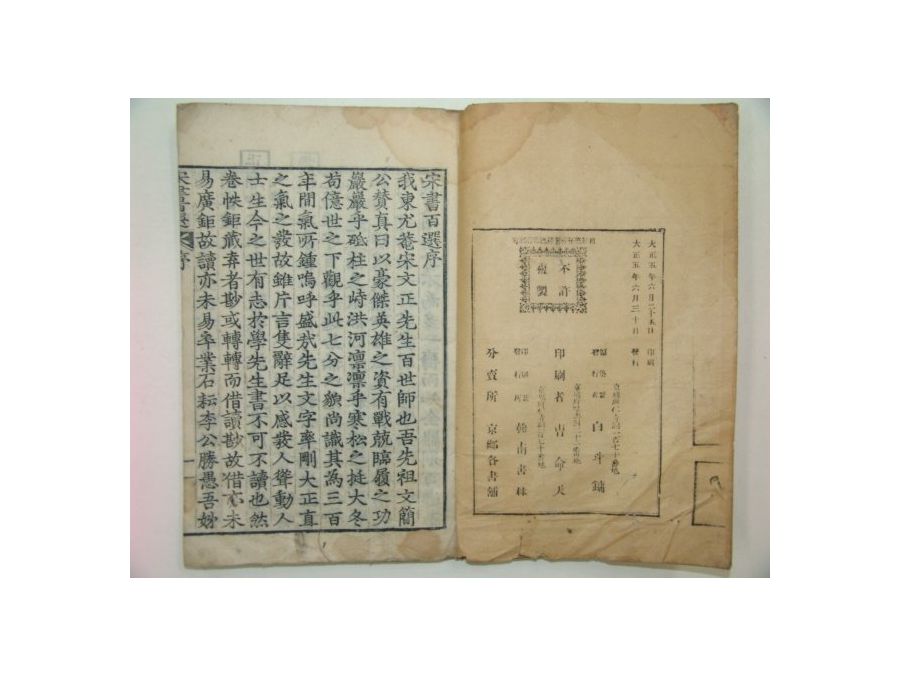 大正五年六月二十五日 印刷
大正五年六月三十日 發行
不許
複製
發行 白斗鏞
印刷者 吉命天
翰南書林
分賣所 京鄕各書舖
宋書百選序
我東尤菴宋文正先生百世師也吾先祖文簡
公贊真曰以豪傑英雄之資有戰兢臨履之功
巖巖乎砥柱之峙洪河凛凛乎寒松之挺大冬
苟億世之下觀乎此七分之貌尚識其為三百
年間氣所鍾嗚呼盛㢤先生文字率剛大正直
之氣之發故雖片言隻辭足以感發人聳動人
士生今之世有志於學先生書不可不讀也然
卷帙鉅藏弆者尠或轉轉而借讀尠故借亦未
易廣鉅故讀亦未易卒業石耘李公勝愚吾妙
宋書百選 序